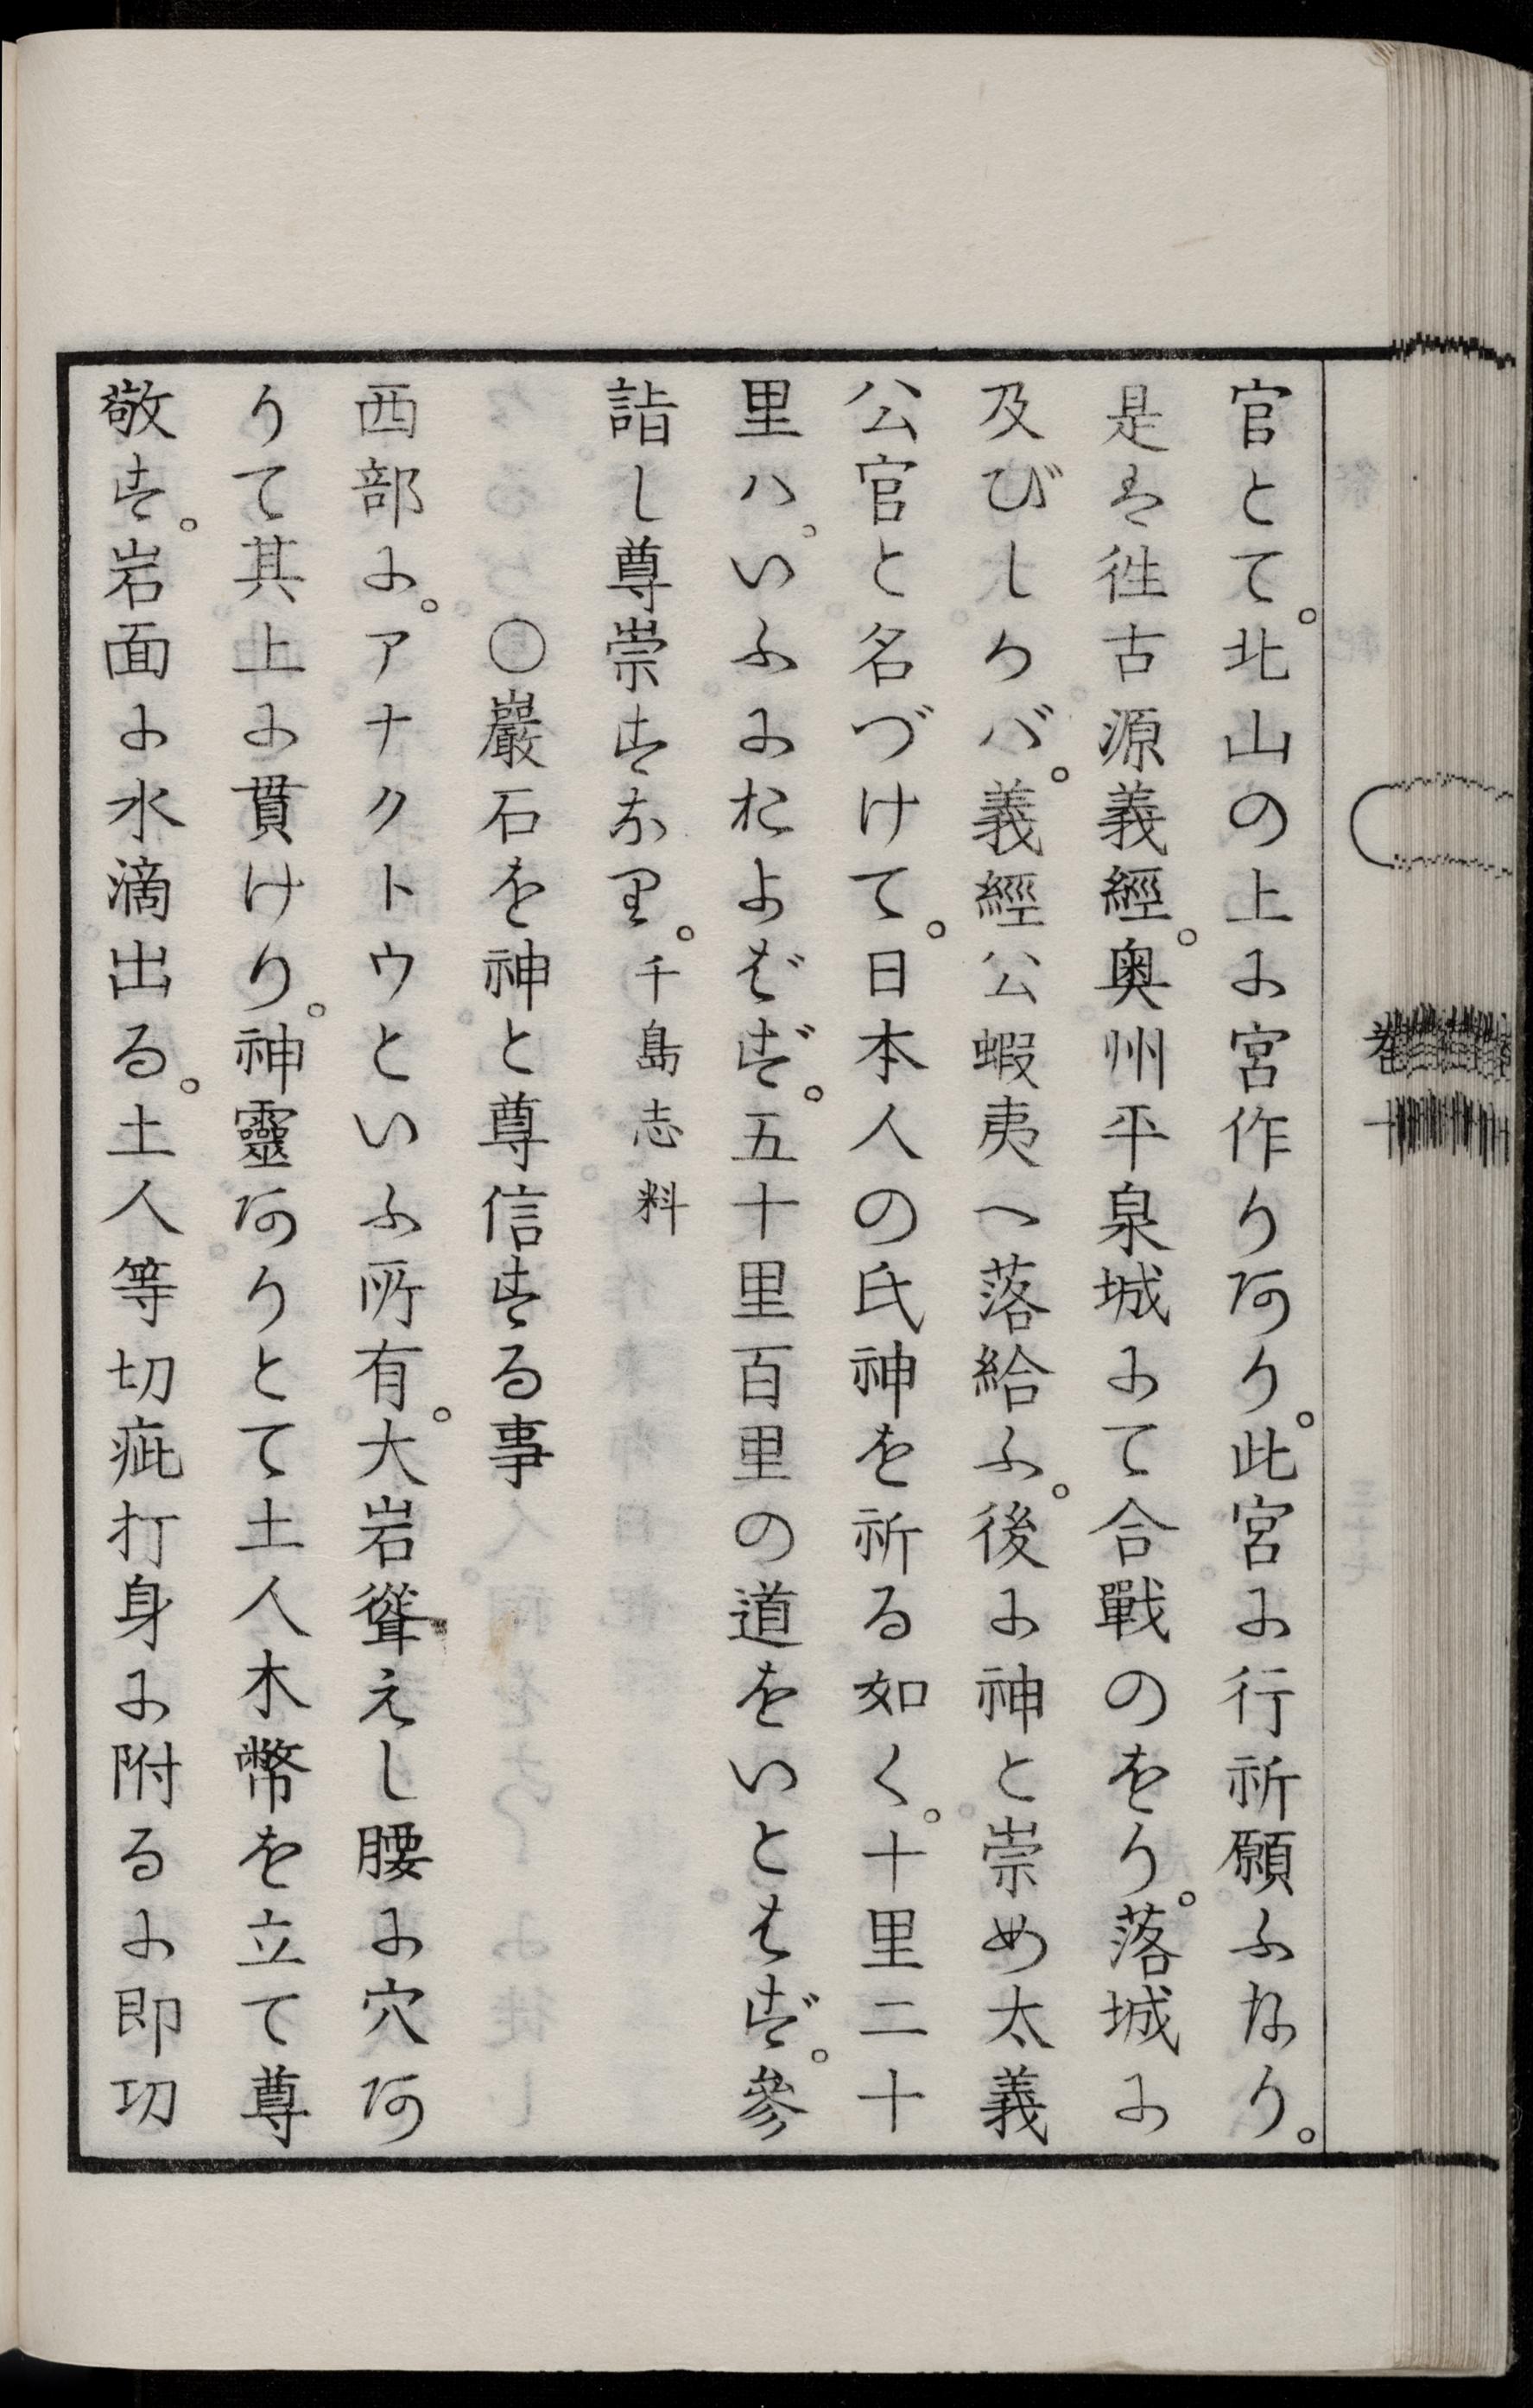 官とて。北山の上に宮作り阿り。此宮に行祈願ふなり。
是は徃古源義經。奥州平泉城にて合戰のをり。落城に
及びしかバ。義經公蝦夷へ落給ふ。後に神と崇め太義
公官と名づけて。日本人の氏神を祈る如く。十里二十
里ハ。いふにおよばず。五十里百里の道をいとはず。參
詣し尊崇すなり。千島志料
〇巖石を神と尊信する事
西部に。アナクトウといふ所有。大岩聳えし腰に穴阿
りて其上に貫けり。神靈阿りとて土人木幣を立て尊
敬す。岩面に水滴出る。土人等切疵打身に附るに即功